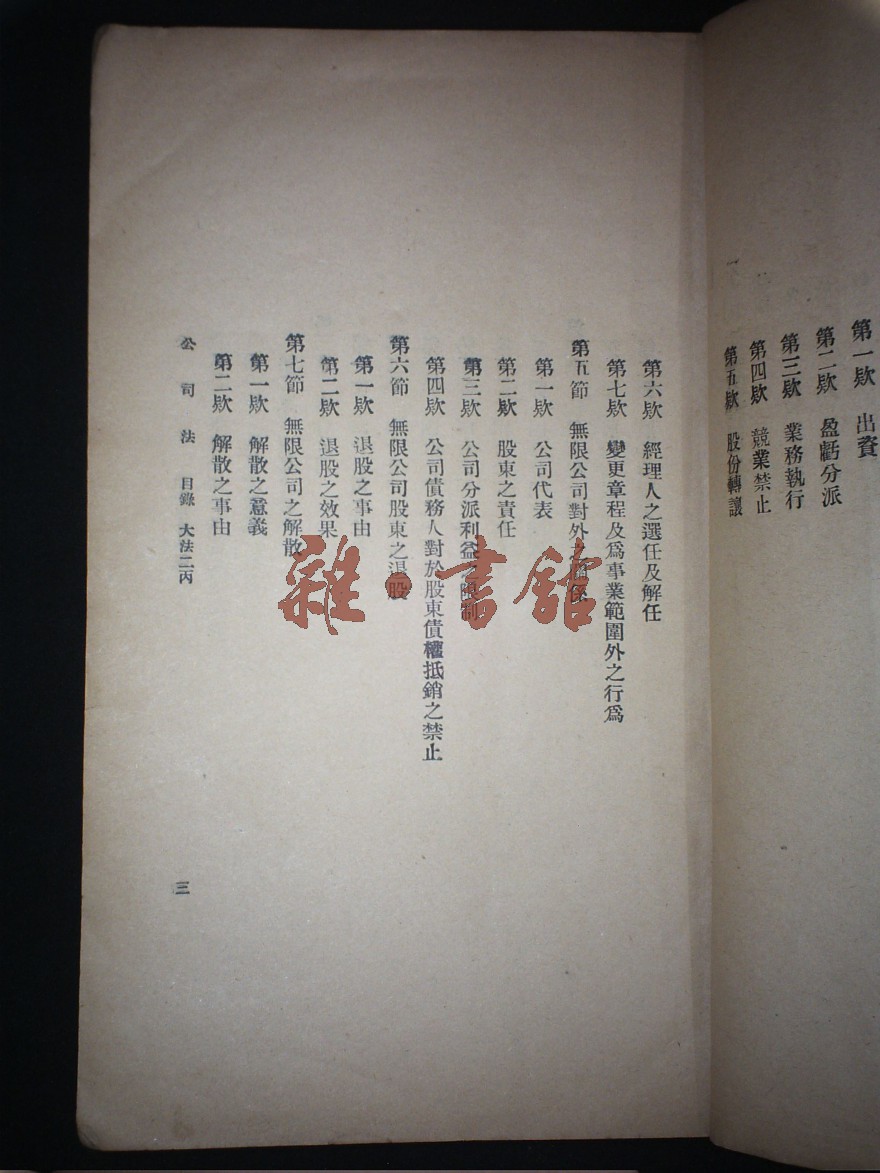 第一欵　出資
第二欵　盈虧分派
第三欵　業務執行
第四欵　競業禁止
第五欵　股份轉讓
第六欵　經理人之選任及解任
第七欵　變更章程及爲事業範圍外之行爲
第五節　無限公司對外之關係
第一欵　公司代表
第二欵　股東之責任
第三欵　公司分派利益之限制
第四欵　公司債務人對於股東債權抵銷之禁止
第六節　無限公司股東之退股
第一欵　退股之事由
第二欵　退股之效果
第七節　無限公司之解散
第一欵　解散之意義
第二欵　解散之事由
公司法　目錄　大法二丙　三
雜·書舘